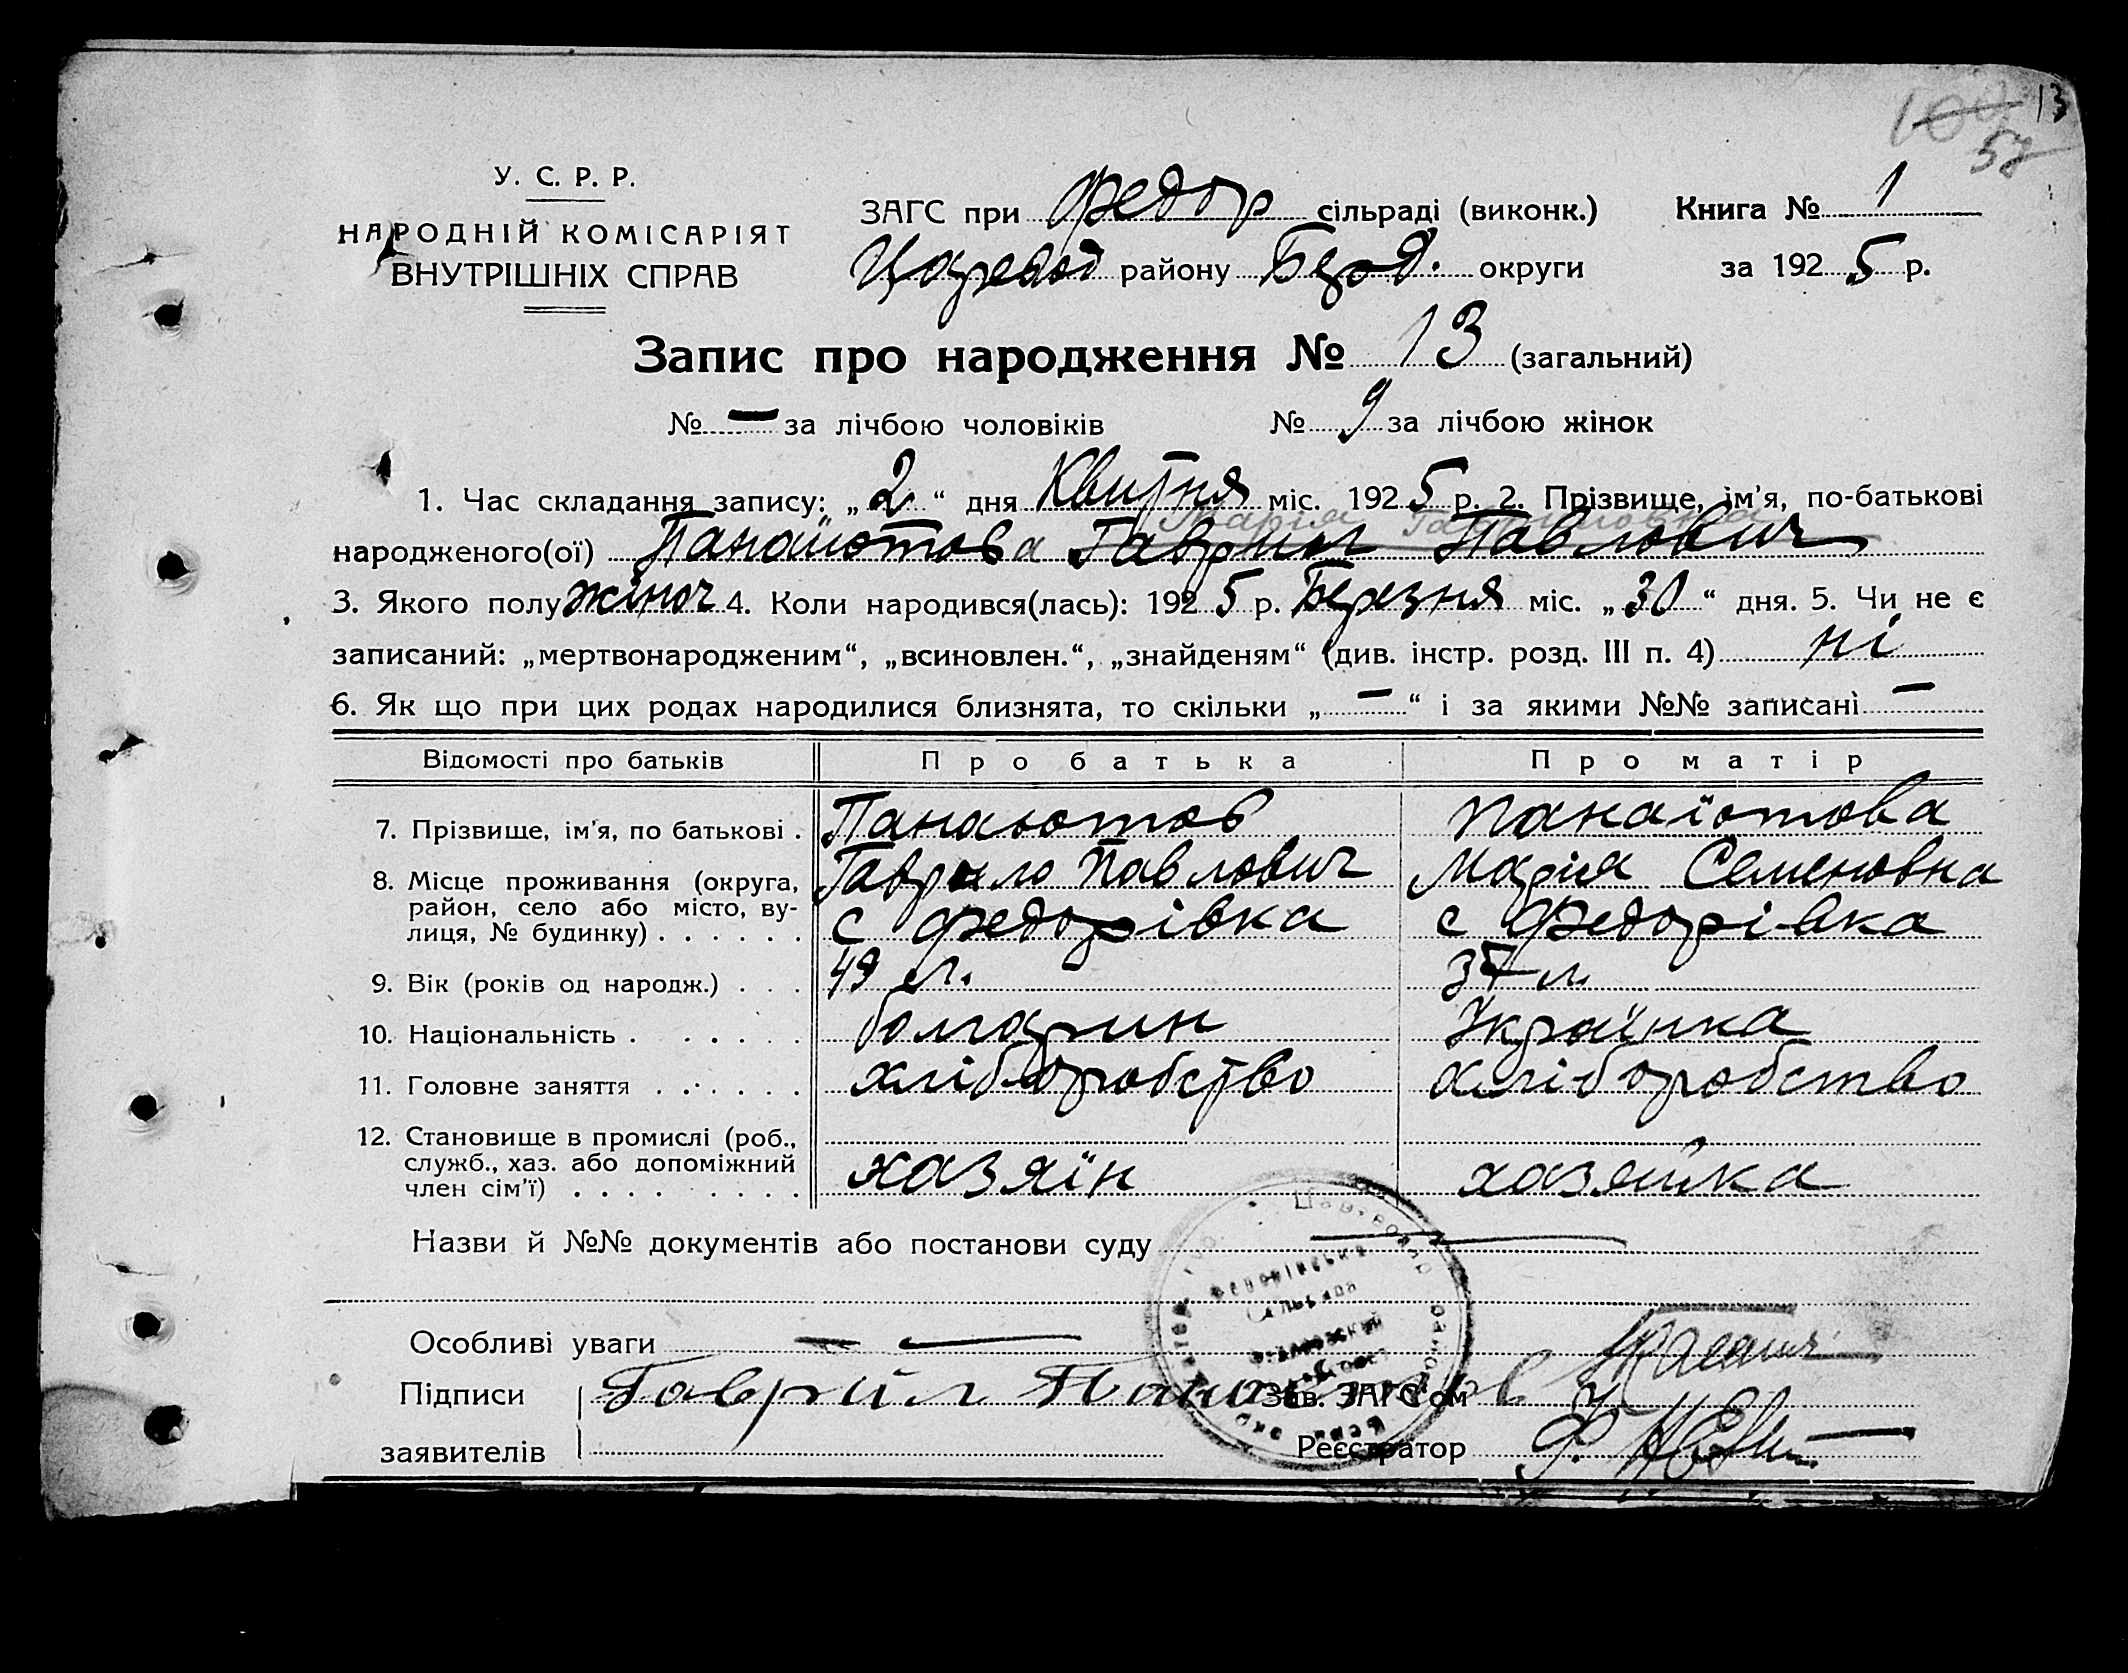 13
100
57
У. С. Р. Р.
НАРОДНІЙ КОМІСАРІЯТ
ВНУТРІШНІХ СПРАВ
ЗАГС при Федор сільраді (виконк.) Книга № 1
Царевод району Берд. округи за 1925 р.
Запис про народження № 13 (загальний)
№ — за лічбою чоловіків № 9 за лічбою жінок
1. Час складання запису: „2“ дня Квитня міс. 1925 р. 2. Прізвище, ім'я, по-батькові
Мария Гавриловна
народженого(ої) Панаіотова Гаврил Павлович
3. Якого полу жіноч 4. Коли народився(лась): 1925 р. Березня міс. „30“ дня. 5. Чи не є
записаний: „мертвонародженим“, „всиновлен.“, „знайденям“ (див. інстр. розд. III п. 4) ні
6. Як що при цих родах народилися близнята, то скільки „—“ і за якими №№ записані —
Відомості про батьків Про батька Про матір
7. Прізвище, ім'я, по батькові . Панаіотов Панаіотова
Гаврило Павлович Мария Семеновна
8. Місце проживання (округа, район, село або місто, ву-
лиця, № будинку) . . . . . . с Федорівка с Федорівка
9. Вік (років од народж.) . . . 49 л. 37 л.
10. Національність . . . . . . болгарин Українка
11. Головне заняття . . . . . . хліборобство хліборобство
12. Становище в промислі (роб.,
служб., хаз. або допоміжний
член сім'ї) . . . . . . . . . хазяїн хазяйка
Назви й №№ документів або постанови суду —
Особливі уваги — —
Підписи Гаврил Панаіотов Зав. ЗАГС'ом
заявителів Реєстратор Ф.